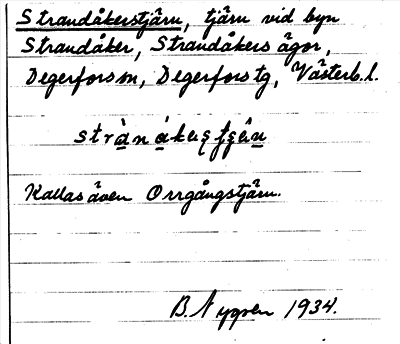 Strandåkerstjärn, tjärn vid byn
Strandåker, Strandåkers ägor,
Degerforsm, Degerforstg, Västerb.l.
Kallas även Orrgångstjärn.
B. Nygren 1934.